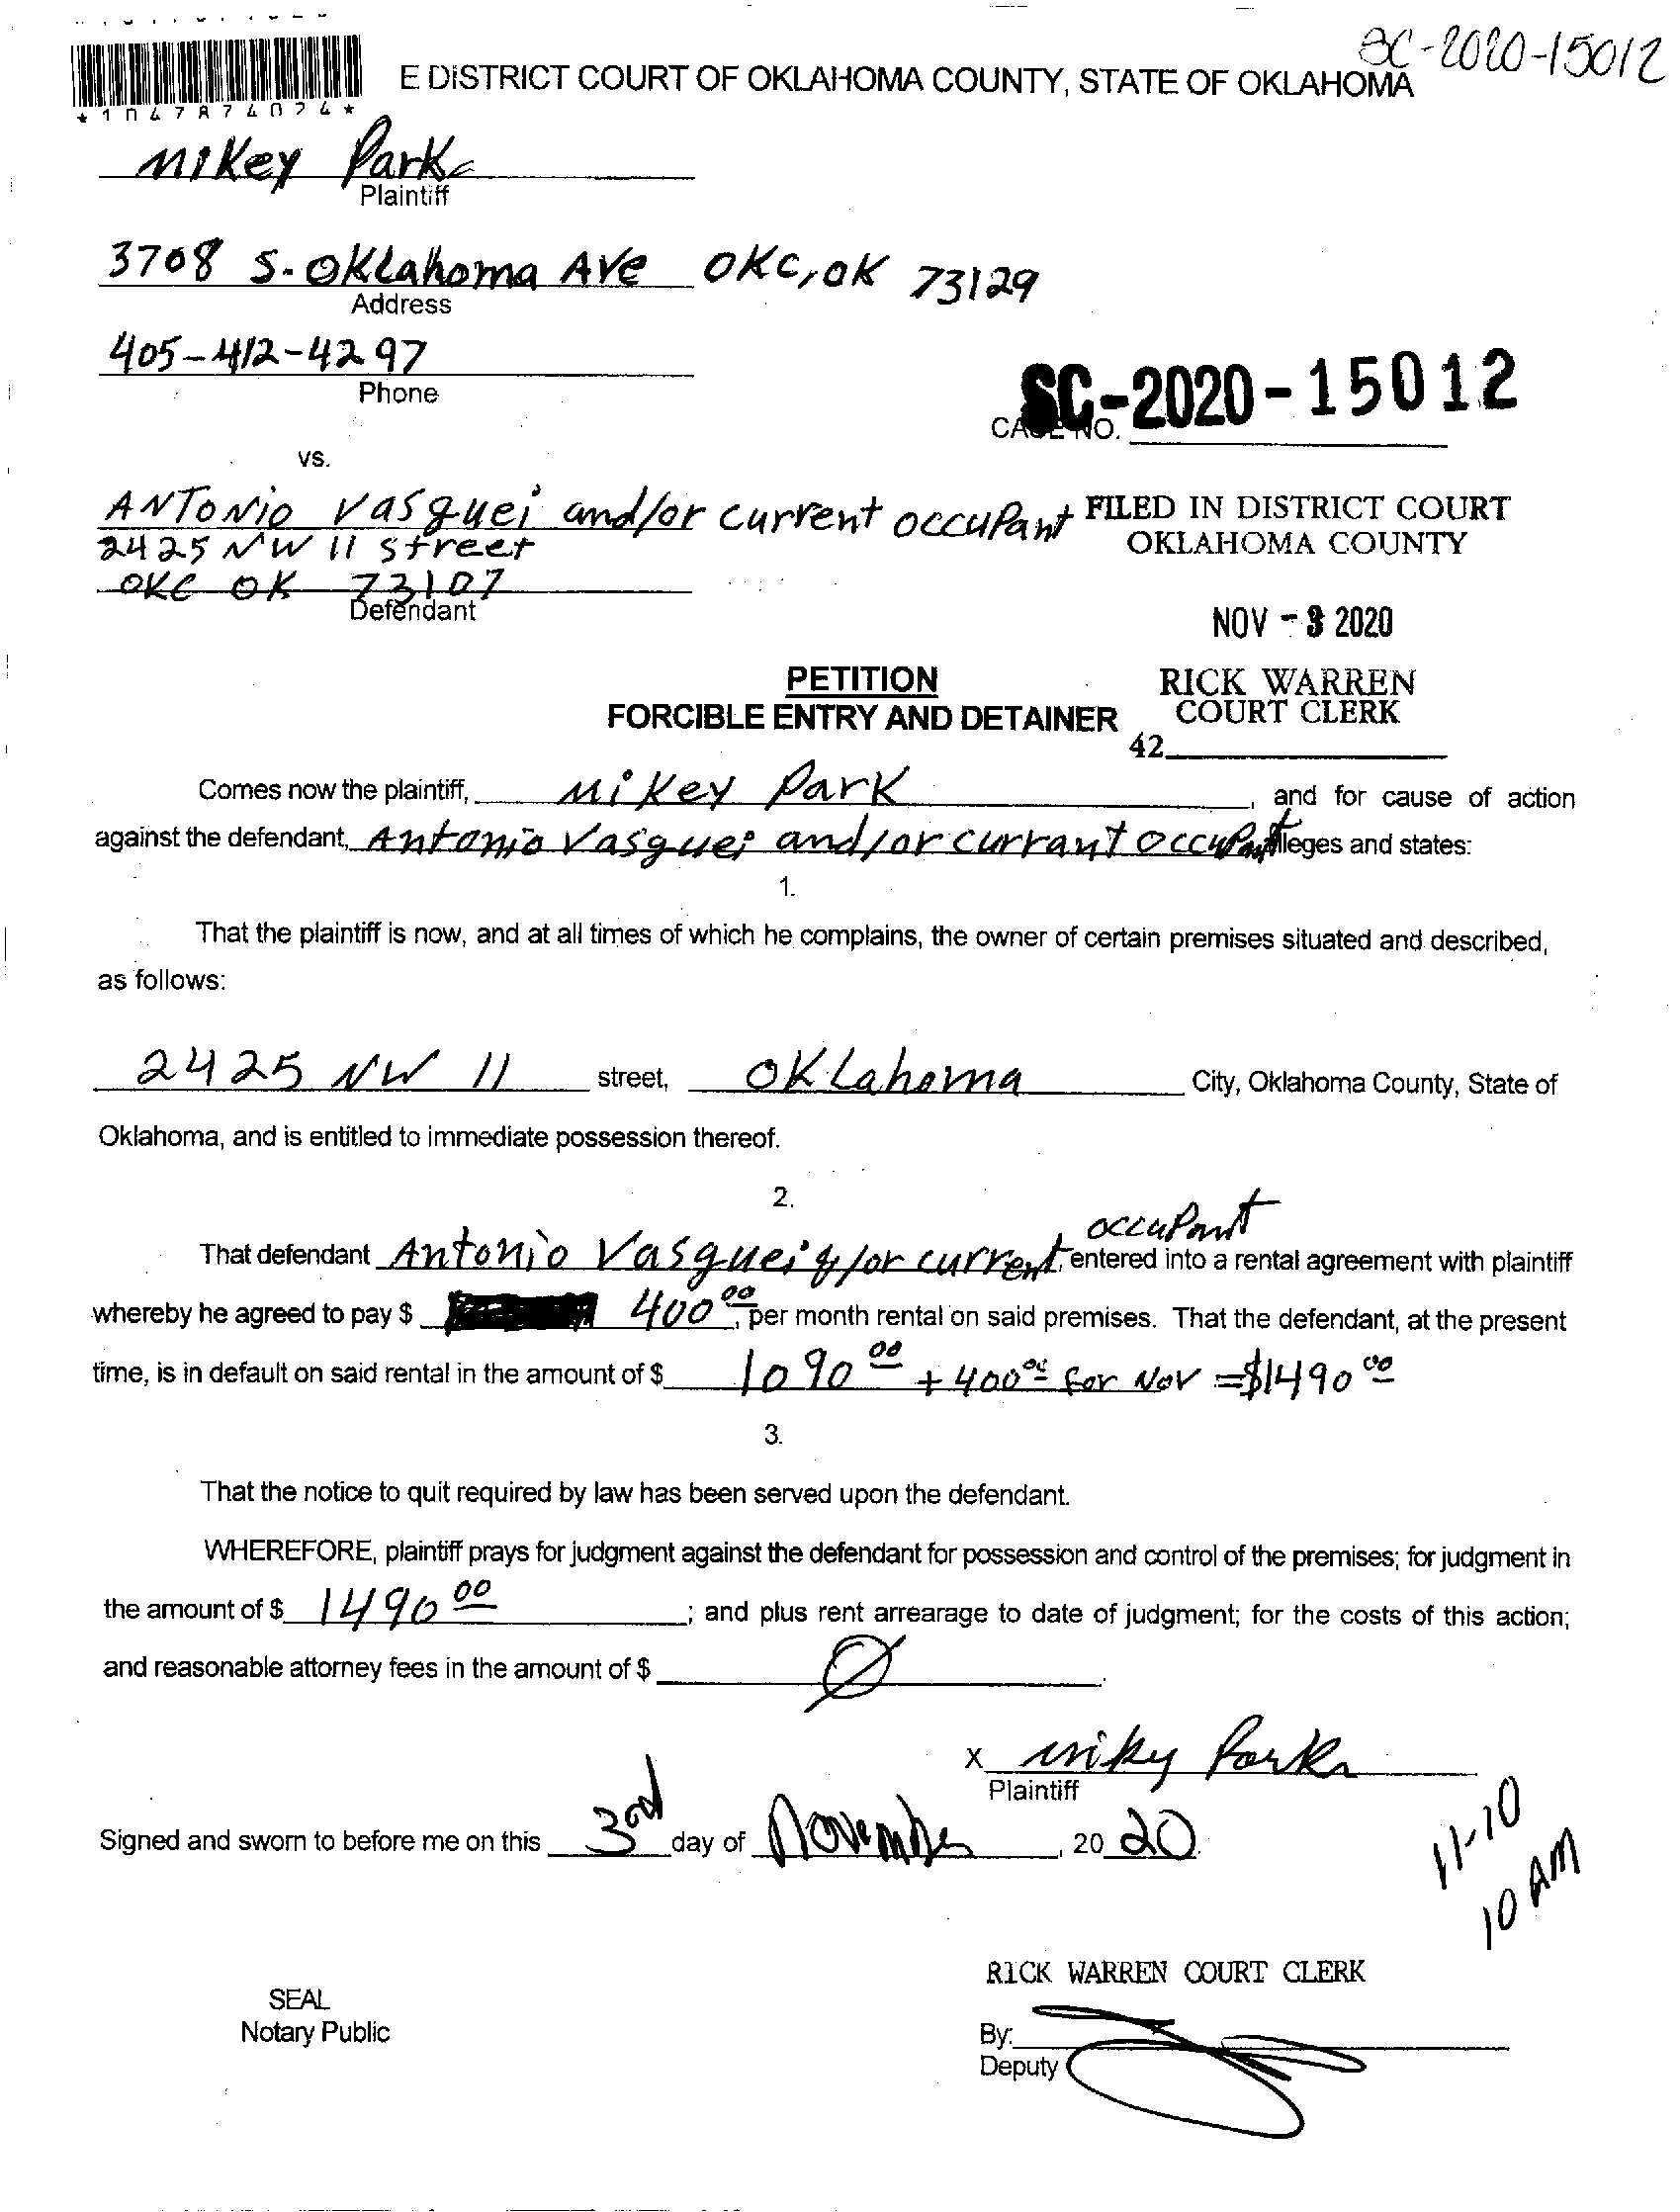 SC-2020-15012
E DISTRICT COURT OF OKLAHOMA COUNTY, STATE OF OKLAHOMA
*1047874024*
Mikey Park
Plaintiff
3708 S. Oklahoma Ave OKC, OK 73129
Address
405-412-4297
Phone
SC-2020-15012
CASE NO.
vs.
Antonio Vasquei and/or current occupant
2425 NW 11 street
OKC OK 73107
Defendant
FILED IN DISTRICT COURT
OKLAHOMA COUNTY
NOV - 3 2020
RICK WARREN
COURT CLERK
42
PETITION
FORCIBLE ENTRY AND DETAINER
Comes now the plaintiff, Mikey Park, and for cause of action
against the defendant, Antonio Vasquei and/or currant occupant alleges and states:
1.
That the plaintiff is now, and at all times of which he complains, the owner of certain premises situated and described,
as follows:
2425 NW 11 street, Oklahoma City, Oklahoma County, State of
Oklahoma, and is entitled to immediate possession thereof.
2.
occupant
That defendant Antonio Vasquei &/or current, entered into a rental agreement with plaintiff
whereby he agreed to pay $ 400 00, per month rental on said premises. That the defendant, at the present
time, is in default on said rental in the amount of $ 1090 00 + 400 00 for Nov = $1490 00
3.
That the notice to quit required by law has been served upon the defendant.
WHEREFORE, plaintiff prays for judgment against the defendant for possession and control of the premises; for judgment in
the amount of $ 1490 00; and plus rent arrearage to date of judgment; for the costs of this action;
and reasonable attorney fees in the amount of $ Ø.
x Miky Park
Plaintiff
Signed and sworn to before me on this 3rd day of November, 20 20.
11-10
10 AM
RICK WARREN COURT CLERK
SEAL
Notary Public
By:
Deputy